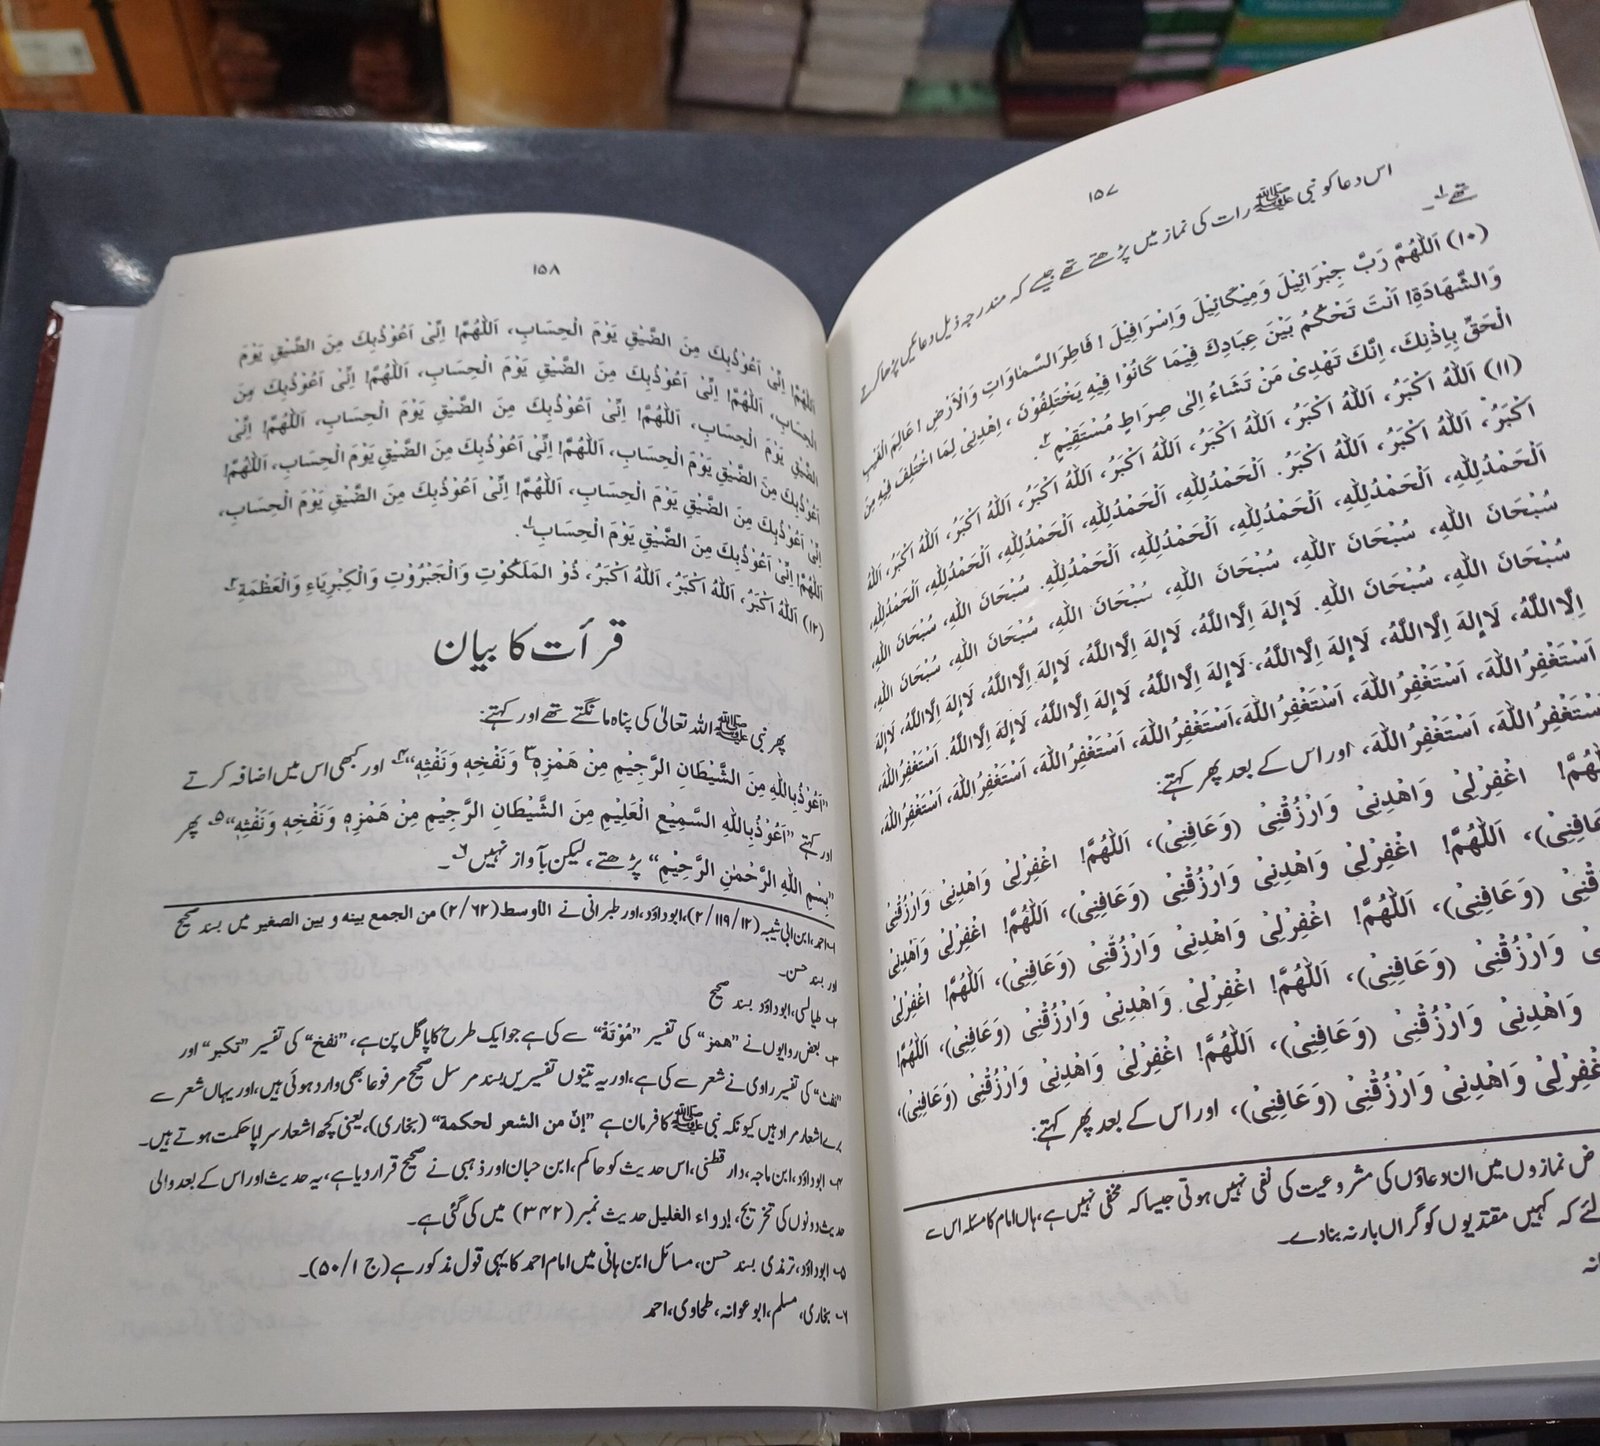 ۱۵۷
اس دعا کو نبی ﷺ رات کی نماز میں پڑھتے تھے جیسے کہ مندرجہ ذیل دعائیں پڑھا کرتے
تھے۱۔
(۱۰) اَللّٰهُمَّ رَبَّ جِبْرَائِيْلَ وَمِيْكَائِيْلَ وَاِسْرَافِيْلَ ! فَاطِرَ السَّمٰاوَاتِ وَالْاَرْضِ ! عَالِمَ الْغَيْبِ
وَالشَّهَادَةِ! اَنْتَ تَحْكُمُ بَيْنَ عِبَادِكَ فِيْمَا كَانُوْا فِيْهِ يَخْتَلِفُوْنَ ، اِهْدِنِىْ لِمَا اخْتُلِفَ فِيْهِ مِنَ
الْحَقِّ بِاِذْنِكَ، اِنَّكَ تَهْدِىْ مَنْ تَشَاءُ اِلٰى صِرَاطٍ مُسْتَقِيْمٍ۲۔
(۱۱) اَللّٰهُ اَكْبَرُ، اَللّٰهُ اَكْبَرُ، اَللّٰهُ اَكْبَرُ، اَللّٰهُ اَكْبَرُ، اَللّٰهُ اَكْبَرُ، اَللّٰهُ اَكْبَرُ، اَللّٰهُ اَكْبَرُ، اَللّٰهُ
اَكْبَرُ، اَللّٰهُ اَكْبَرُ، اَللّٰهُ اَكْبَرُ. اَلْحَمْدُلِلّٰهِ، اَلْحَمْدُلِلّٰهِ، اَلْحَمْدُلِلّٰهِ، اَلْحَمْدُلِلّٰهِ، اَلْحَمْدُلِلّٰهِ،
اَلْحَمْدُلِلّٰهِ، اَلْحَمْدُلِلّٰهِ، اَلْحَمْدُلِلّٰهِ، اَلْحَمْدُلِلّٰهِ، اَلْحَمْدُلِلّٰهِ. سُبْحَانَ اللّٰهِ، سُبْحَانَ اللّٰهِ،
سُبْحَانَ اللّٰهِ، سُبْحَانَ اللّٰهِ، سُبْحَانَ اللّٰهِ، سُبْحَانَ اللّٰهِ، سُبْحَانَ اللّٰهِ، سُبْحَانَ اللّٰهِ،
سُبْحَانَ اللّٰهِ، سُبْحَانَ اللّٰهِ. لَاإِلهَ اِلَّااللّٰهُ، لَاإِلهَ اِلَّااللّٰهُ، لَاإِلهَ اِلَّااللّٰهُ، لَاإِلهَ اِلَّااللّٰهُ، لَاإِلهَ
اِلَّااللّٰهُ، لَاإِلهَ اِلَّااللّٰهُ، لَاإِلهَ اِلَّااللّٰهُ، لَاإِلهَ اِلَّااللّٰهُ، لَاإِلهَ اِلَّااللّٰهُ، لَاإِلهَ اِلَّااللّٰهُ. اَسْتَغْفِرُاللّٰهَ،
اَسْتَغْفِرُاللّٰهَ، اَسْتَغْفِرُاللّٰهَ، اَسْتَغْفِرُاللّٰهَ، اَسْتَغْفِرُاللّٰهَ،اَسْتَغْفِرُاللّٰهَ، اَسْتَغْفِرُاللّٰهَ، اَسْتَغْفِرُاللّٰهَ،
اَسْتَغْفِرُاللّٰهَ، اَسْتَغْفِرُاللّٰهَ، اور اس کے بعد پھر کہتے:
اغْفِرْلِىْ وَاهْدِنِىْ وَارْزُقْنِىْ (وَعَافِنِىْ)، اَللّٰهُمَّ! اغْفِرْلِىْ وَاهْدِنِىْ وَارْزُقْنِىْ
اَللّٰهُمَّ! اغْفِرْلِىْ وَاهْدِنِىْ وَارْزُقْنِىْ (وَعَافِنِىْ)، اَللّٰهُمَّ! اغْفِرْلِىْ وَاهْدِنِىْ
(وَعَافِنِىْ)، اَللّٰهُمَّ! اغْفِرْلِىْ وَاهْدِنِىْ وَارْزُقْنِىْ (وَعَافِنِىْ)، اَللّٰهُمَّ! اغْفِرْلِىْ
وَارْزُقْنِىْ (وَعَافِنِىْ)، اَللّٰهُمَّ! اغْفِرْلِىْ وَاهْدِنِىْ وَارْزُقْنِىْ (وَعَافِنِىْ)، اَللّٰهُمَّ!
وَاهْدِنِىْ وَارْزُقْنِىْ (وَعَافِنِىْ)، اَللّٰهُمَّ! اغْفِرْلِىْ وَاهْدِنِىْ وَارْزُقْنِىْ (وَعَافِنِىْ)،
وَاهْدِنِىْ وَارْزُقْنِىْ (وَعَافِنِىْ)، اور اس کے بعد پھر کہتے:
نمازوں میں ان دعاؤں کی مشروعیت کی نفی نہیں ہوتی جیسا کہ مخفی نہیں ہے، ہاں امام کا مسئلہ اس سے
کہ کہیں مقتدیوں کو گراں بار نہ بنادے۔
۱۵۸
اَللّٰهُمَّ! اِنِّىْ اَعُوْذُبِكَ مِنَ الضَّيْقِ يَوْمَ الْحِسَابِ، اَللّٰهُمَّ! اِنِّىْ اَعُوْذُبِكَ مِنَ الضَّيْقِ يَوْمَ
الْحِسَابِ، اَللّٰهُمَّ! اِنِّىْ اَعُوْذُبِكَ مِنَ الضَّيْقِ يَوْمَ الْحِسَابِ، اَللّٰهُمَّ! اِنِّىْ اَعُوْذُبِكَ مِنَ
الضَّيْقِ يَوْمَ الْحِسَابِ، اَللّٰهُمَّ! اِنِّىْ اَعُوْذُبِكَ مِنَ الضَّيْقِ يَوْمَ الْحِسَابِ، اَللّٰهُمَّ! اِنِّىْ
اَعُوْذُبِكَ مِنَ الضَّيْقِ يَوْمَ الْحِسَابِ، اَللّٰهُمَّ! اِنِّىْ اَعُوْذُبِكَ مِنَ الضَّيْقِ يَوْمَ الْحِسَابِ، اَللّٰهُمَّ!
اِنِّىْ اَعُوْذُبِكَ مِنَ الضَّيْقِ يَوْمَ الْحِسَابِ، اَللّٰهُمَّ! اِنِّىْ اَعُوْذُبِكَ مِنَ الضَّيْقِ يَوْمَ الْحِسَابِ،
اَللّٰهُمَّ! اِنِّىْ اَعُوْذُبِكَ مِنَ الضَّيْقِ يَوْمَ الْحِسَابِ۱۔
(۱۲) اَللّٰهُ اَكْبَرُ، اَللّٰهُ اَكْبَرُ، اَللّٰهُ اَكْبَرُ، ذُوْ الْمَلَكُوْتِ وَالْجَبْرُوْتِ وَالْكِبْرِيَاءِ وَالْعَظْمَةِ۲۔
قرأت کا بیان
پھر نبی ﷺ اللہ تعالیٰ کی پناہ مانگتے تھے اور کہتے:
”اَعُوْذُبِاللّٰهِ مِنَ الشَّيْطَانِ الرَّجِيْمِ مِنْ هَمْزِهٖ۳ وَنَفْخِهٖ وَنَفْثِهٖ“۴ اور کبھی اس میں اضافہ کرتے
اور کہتے ”اَعُوْذُبِاللّٰهِ السَّمِيْعِ الْعَلِيْمِ مِنَ الشَّيْطَانِ الرَّجِيْمِ مِنْ هَمْزِهٖ وَنَفْخِهٖ وَنَفْثِهٖ“۵۔ پھر
”بِسْمِ اللّٰهِ الرَّحْمٰنِ الرَّحِيْمِ“ پڑھتے، لیکن بآواز نہیں۶۔
۱۔ احمد، ابن ابی شیبہ (۲/۱۱۹/۱۲)، ابوداؤد، اور طبرانی نے الأوسط (۲/۶۲) من الجمع بينه و بين الصغير میں بسند صحیح
اور بسند حسن۔
۲۔ طیالسی، ابوداؤد بسند صحیح
۳۔ بعض راویوں نے ”ھمز“ کی تفسیر ”مُوْتَة“ سے کی ہے جو ایک طرح کا پاگل پن ہے، ”نفخ“ کی تفسیر ”تکبر“ اور
”نفث“ کی تفسیر راوی نے شعر سے کی ہے، اور یہ تینوں تفسیریں بسند مرسل صحیح مرفوعاً بھی وارد ہوئی ہیں، اور یہاں شعر سے
برے اشعار مراد ہیں کیونکہ نبی ﷺ کا فرمان ہے ”إنّ من الشعر لحكمة“ (بخاری)، یعنی کچھ اشعار سراپا حکمت ہوتے ہیں۔
۴۔ ابوداؤد، ابن ماجہ، دارقطنی، اس حدیث کو حاکم، ابن حبان اور ذہبی نے صحیح قرار دیا ہے، یہ حدیث اور اس کے بعد والی
حدیث دونوں کی تخریج، إرواء الغليل حدیث نمبر (۳۴۲) میں کی گئی ہے۔
۵۔ ابوداؤد، ترمذی بسند حسن، مسائل ابن ہانی میں امام احمد کا یہی قول مذکور ہے (ج ۱/۵۰)۔
۶۔ بخاری، مسلم، ابوعوانہ، طحاوی، احمد